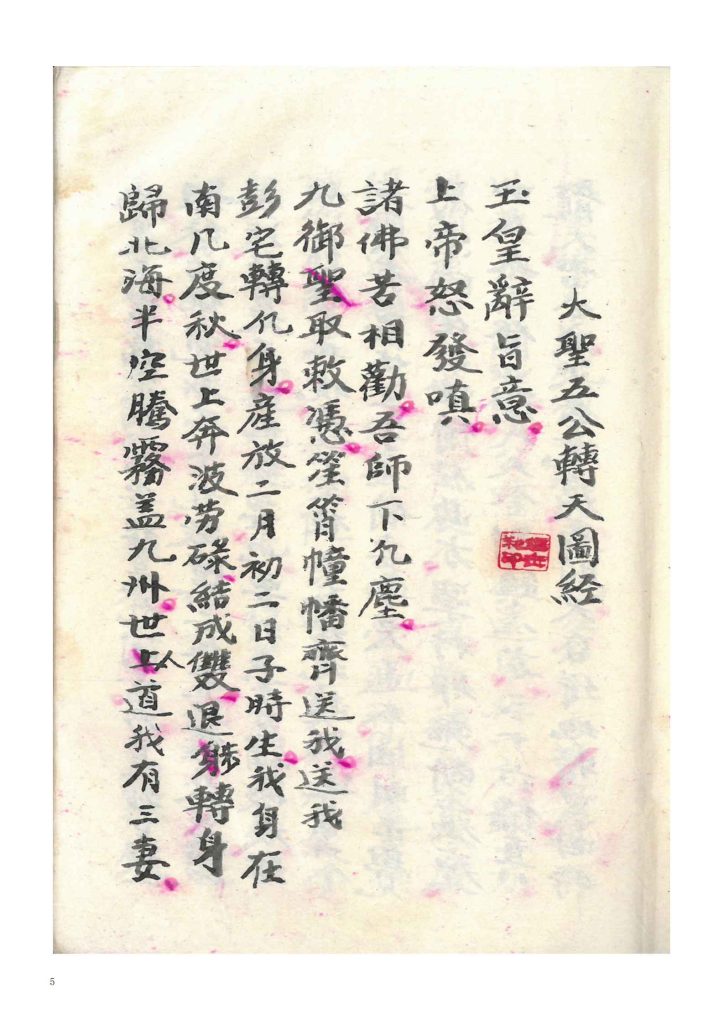 大聖五公轉天圖経
玉皇辭旨意
上帝怒發嗔
諸佛苦相勸吾師下凡塵
九御聖取敕憑笙簫幢幡齊送我送我
彭宅轉化身產放二月初二日子時生我身在
南几度秋世上奔波劳碌結成雙退躰轉身
歸北海半空騰霧盖九州世上人道我有三妻
5